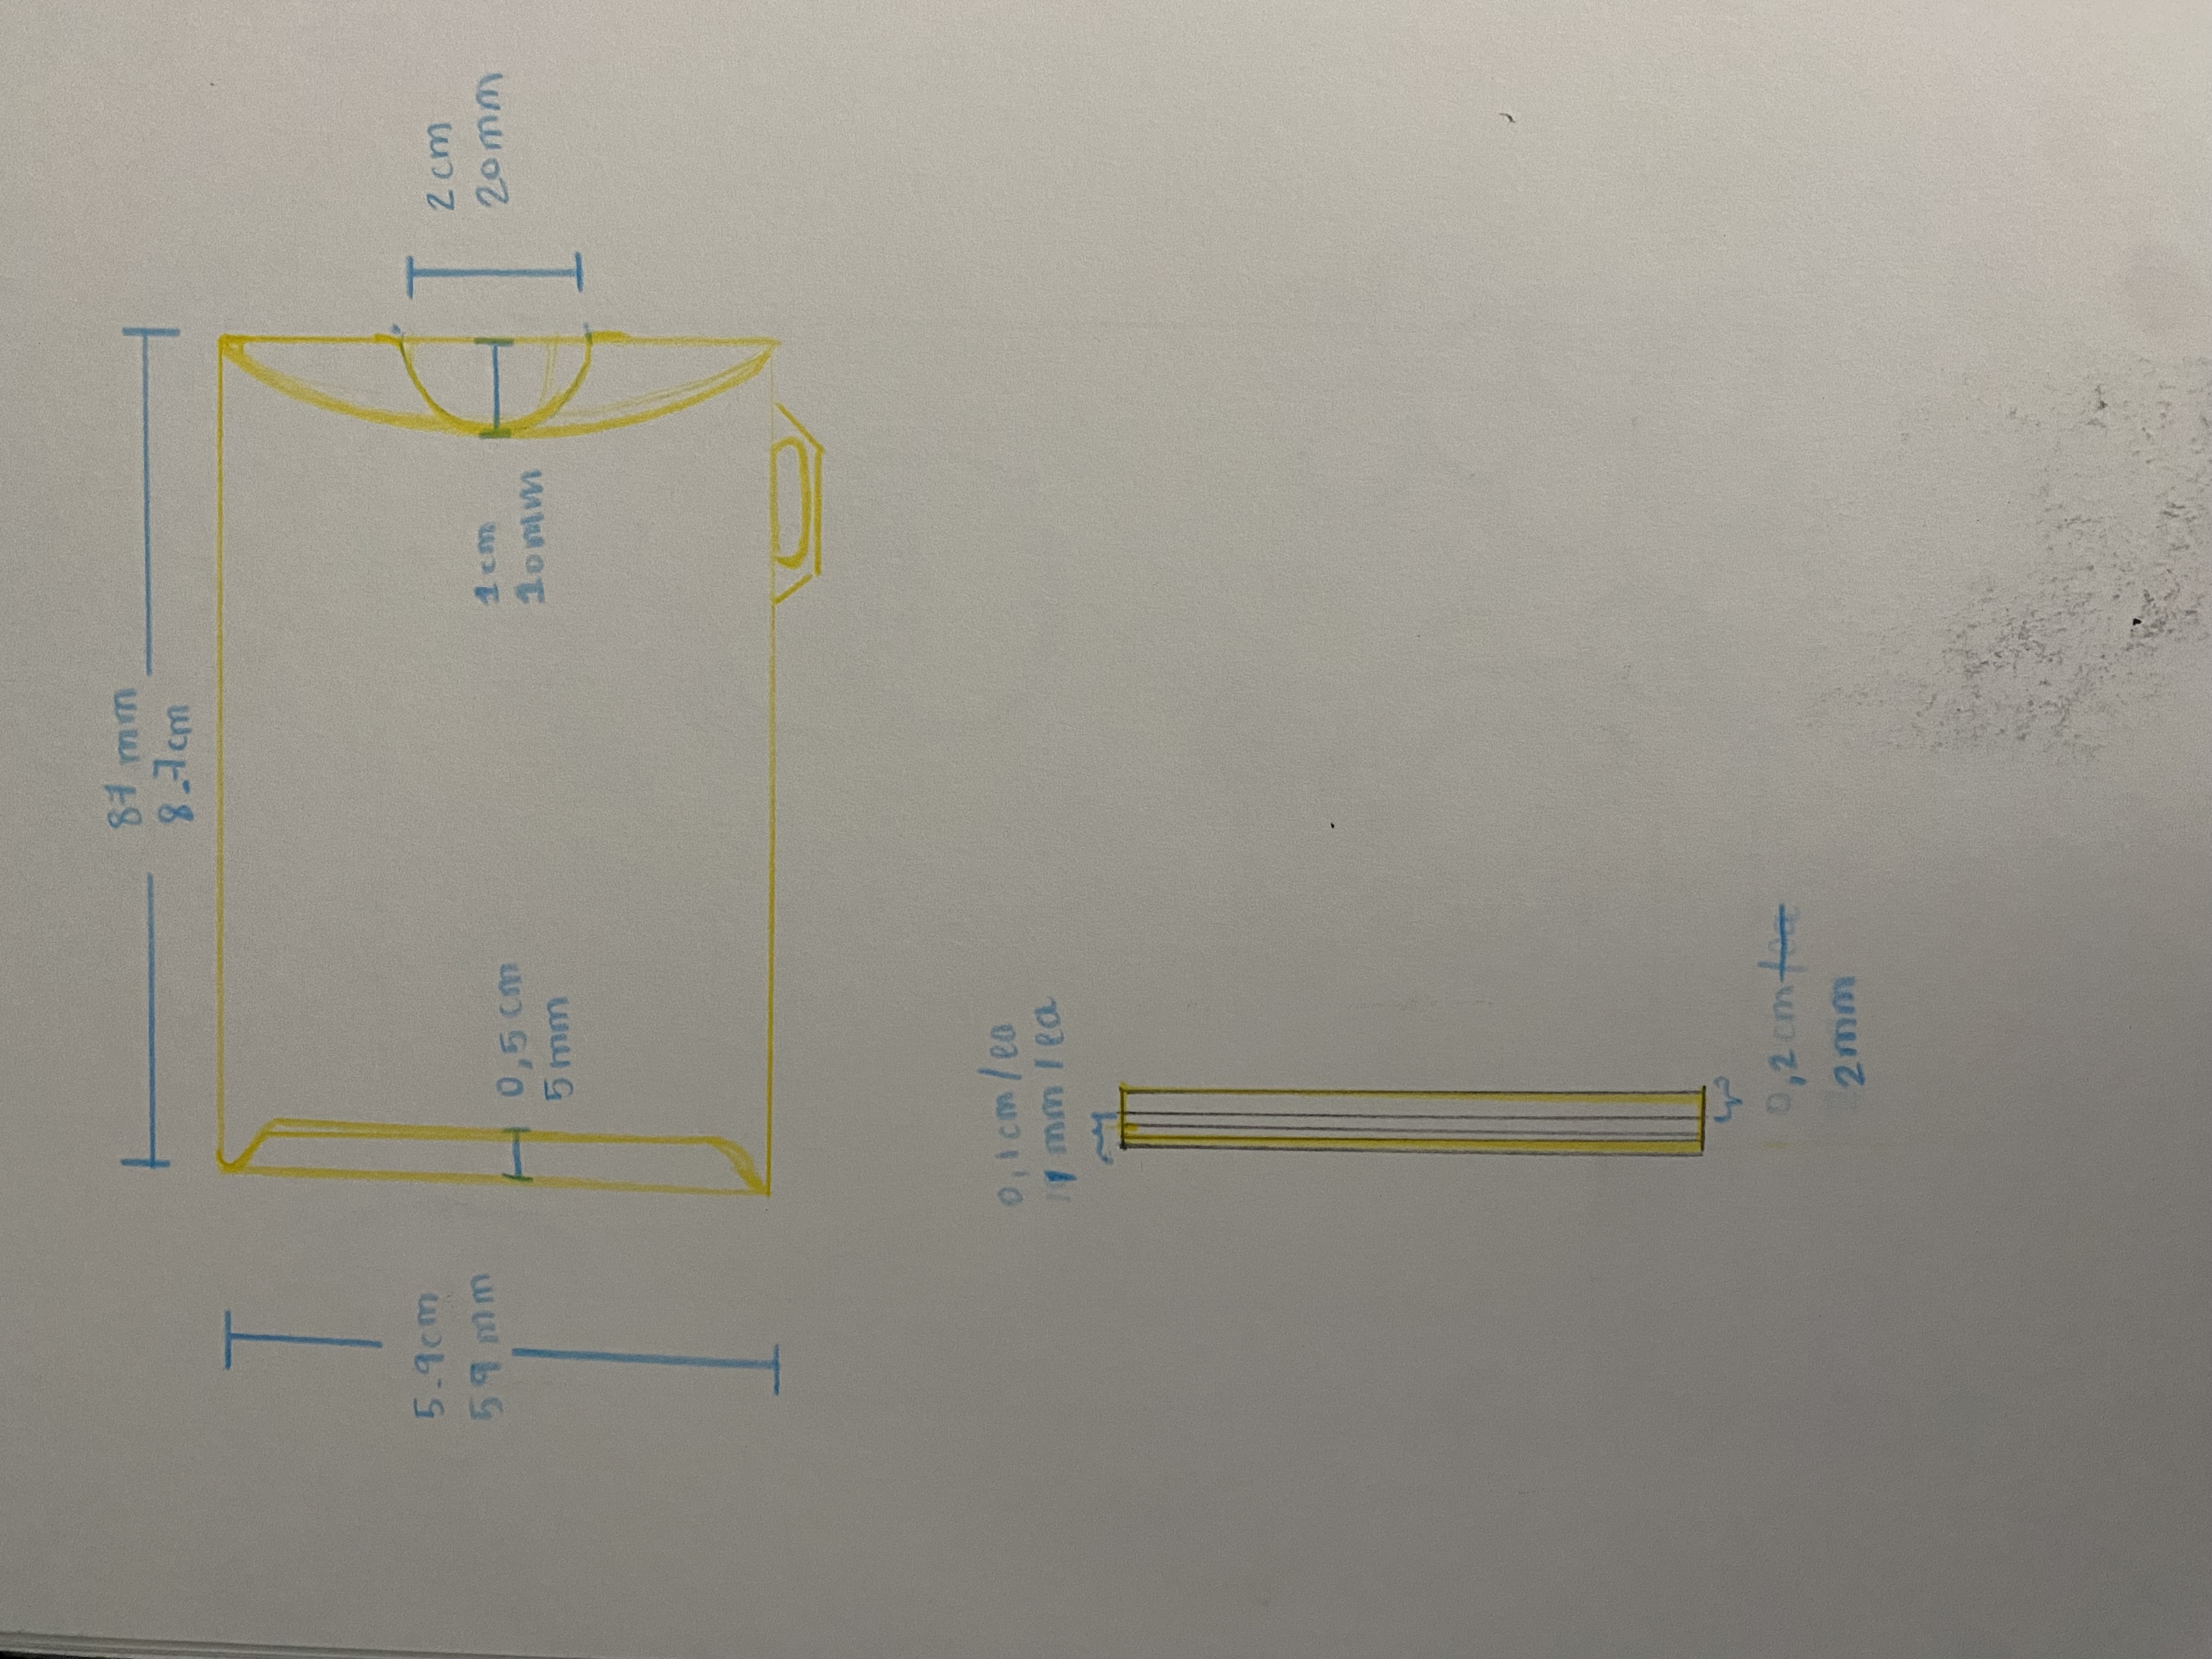 2cm
20mm
87 mm
8.7cm
1cm
10mm
0,5cm
5mm
5.9cm
59 mm
0,1cm/ea
1mm/ea
0,2cm
2mm